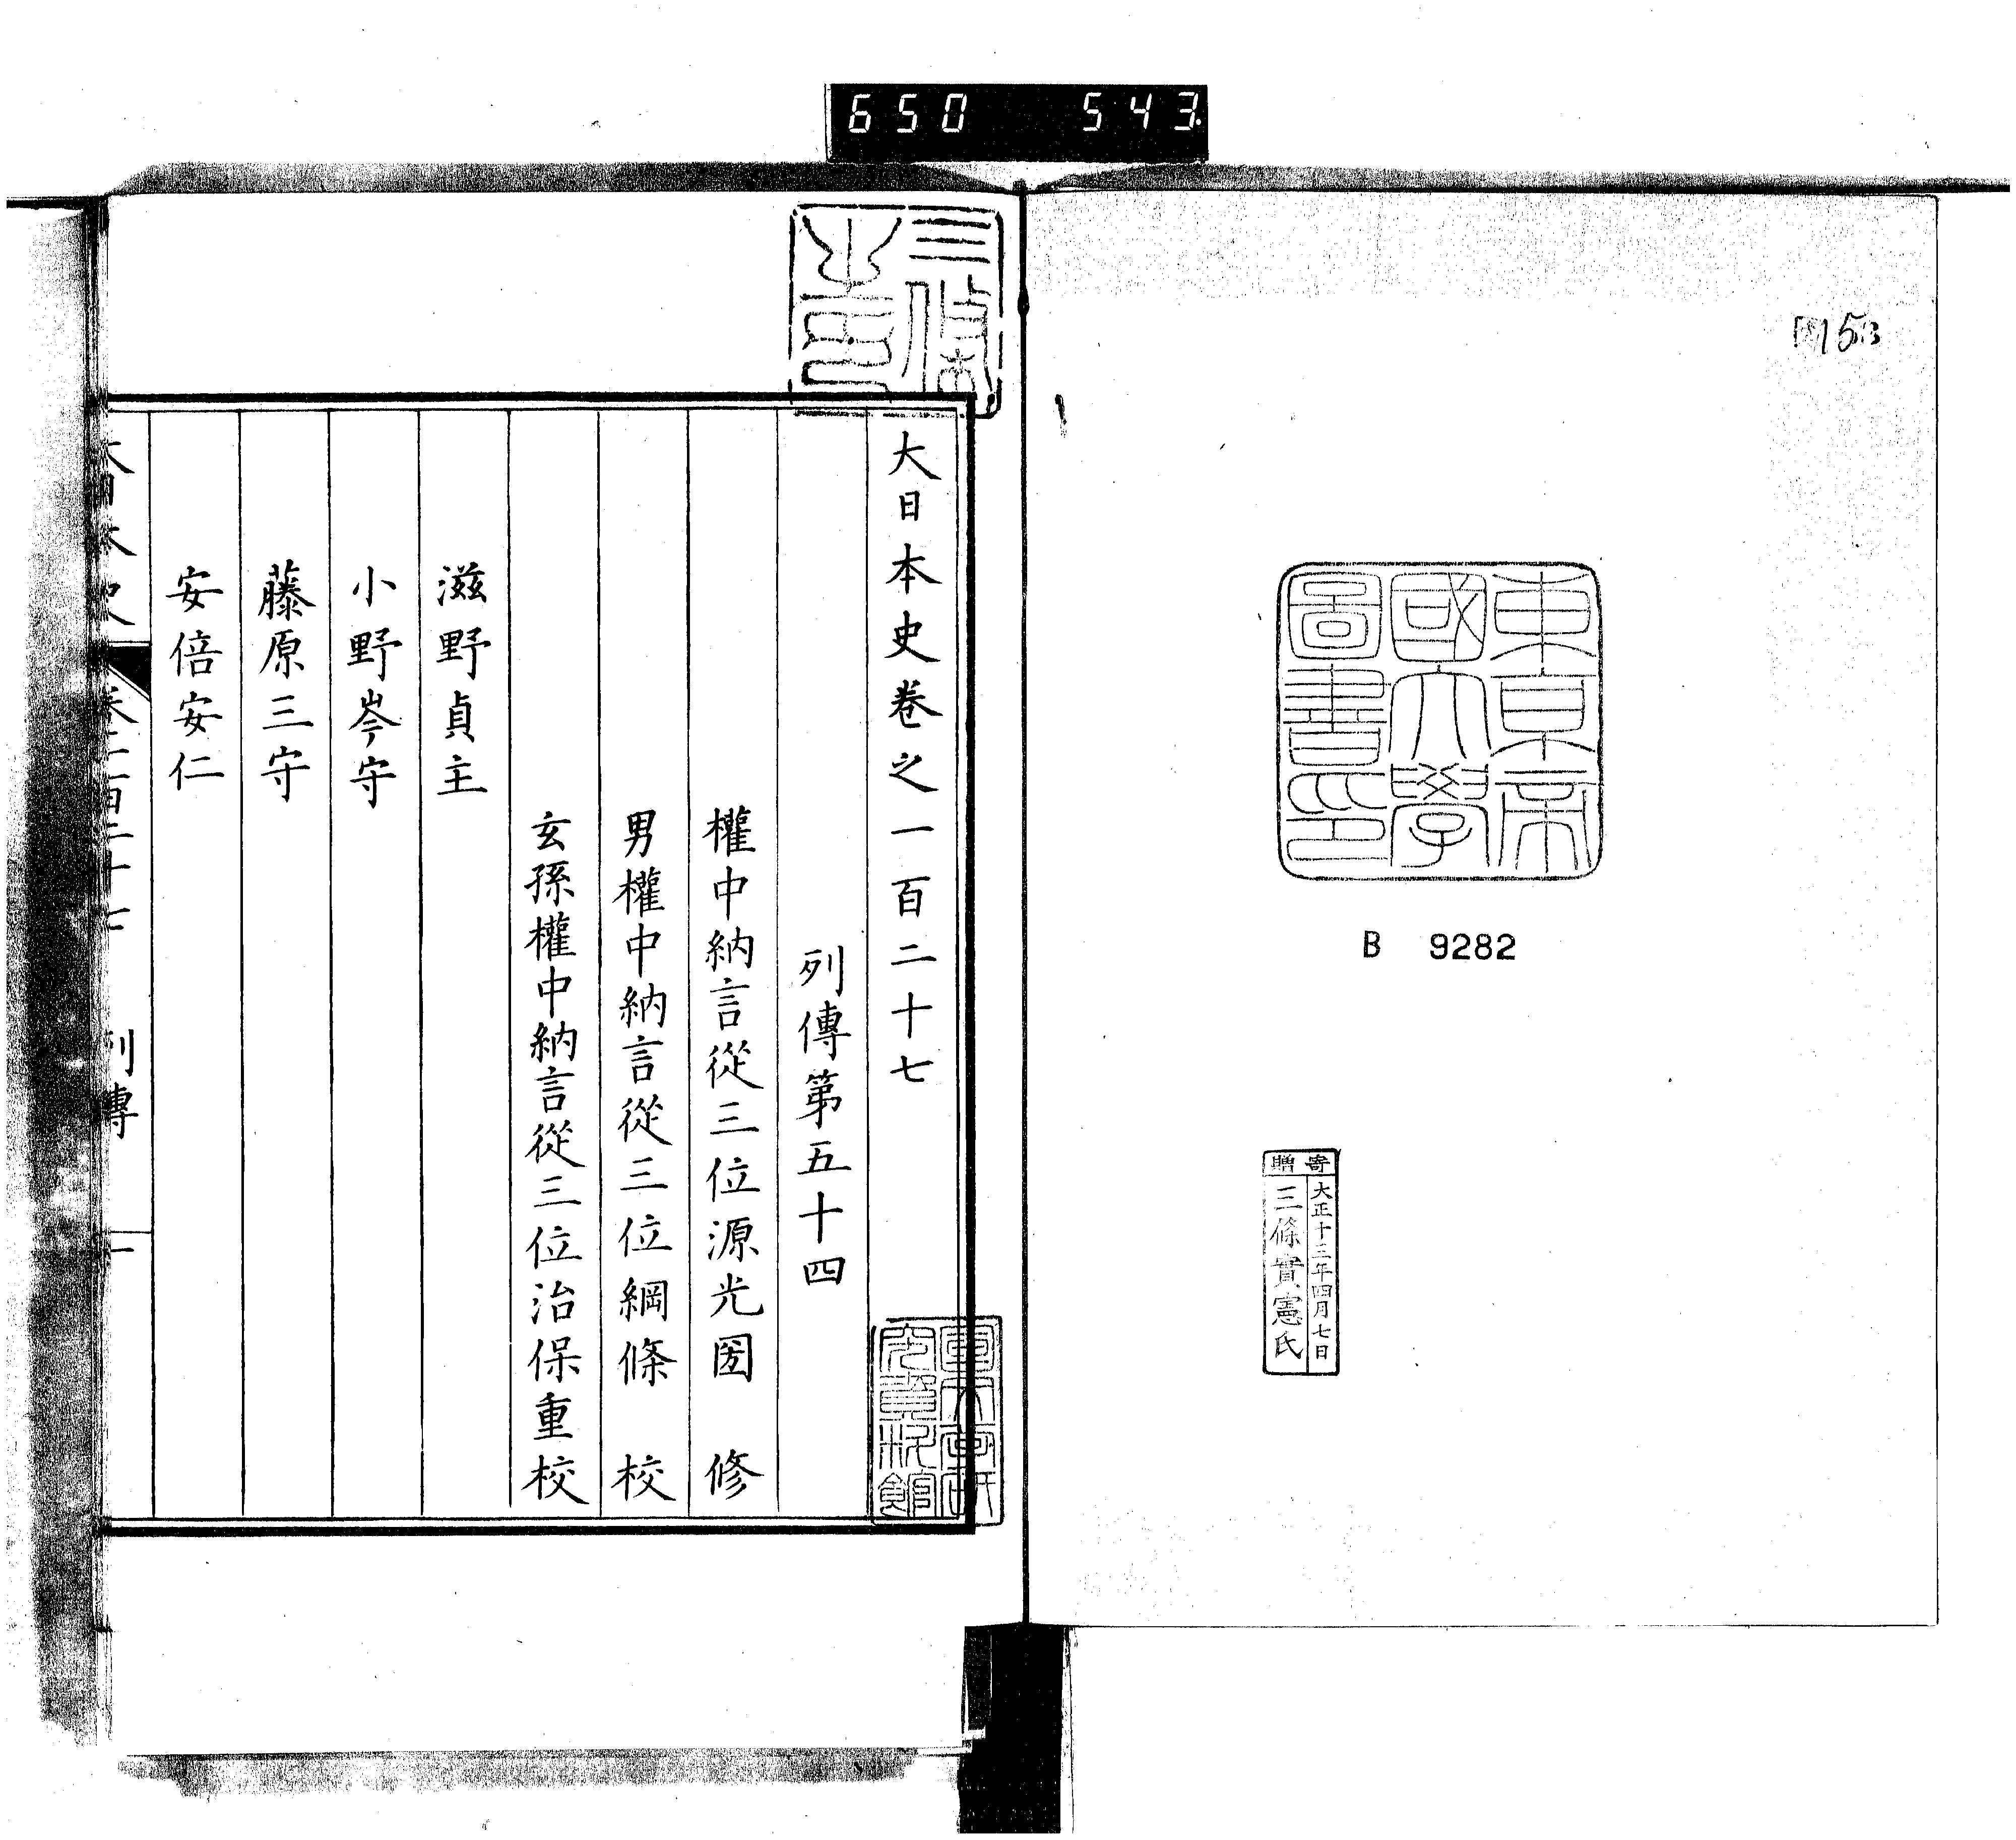 650 543
東京帝
國大學
圖書印
B 9282
寄贈
大正十三年四月七日
三條實憲氏
三條
大日本史卷之一百二十七
列傳第五十四
權中納言從三位源光圀 修
男權中納言從三位綱條 校
玄孫權中納言從三位治保重校
滋野貞主
小野岑守
藤原三守
安倍安仁
大日本史 卷之一百二十七 列傳 一